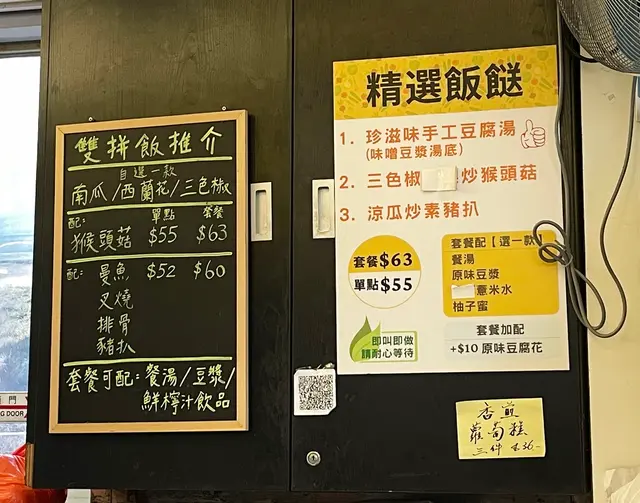 雙拼飯推介
自選一款
南瓜/西蘭花/三色椒
配: 單點 套餐
猴頭菇 $55 $63
配: 曼魚 $52 $60
叉燒
排骨
豬扒
套餐可配:餐湯/豆漿/
鮮檸汁飲品
精選飯餸
1. 珍滋味手工豆腐湯
(味噌豆漿湯底)
2. 三色椒 炒猴頭菇
3. 涼瓜炒素豬扒
套餐$63
單點$55
套餐配【選一款】
餐湯
原味豆漿
薏米水
柚子蜜
即叫即做
請耐心等待
套餐加配
+$10 原味豆腐花
香煎
蘿蔔糕
三件
G DOOR